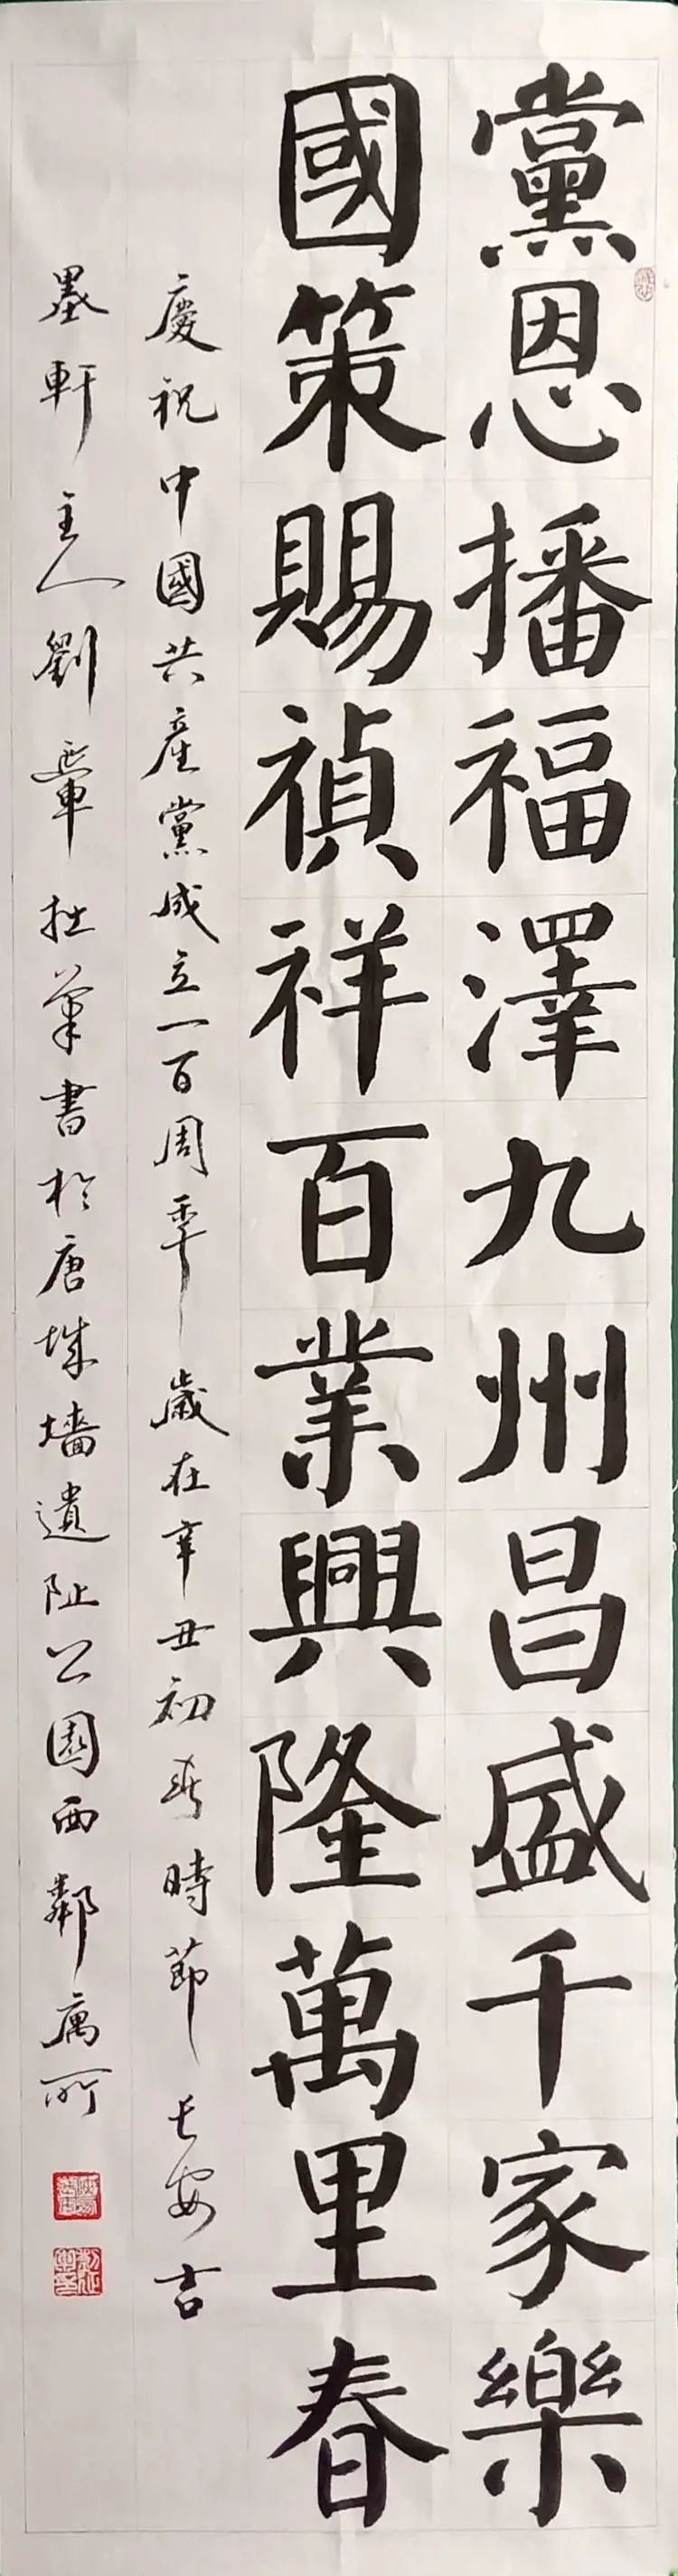 黨恩播福澤九州昌盛千家樂
國策賜禎祥百業興隆萬里春
慶祝中國共産黨成立一百周年歲在辛丑初春時節長安吉
墨軒主人劉延軍拙筆書於唐城墻遺址公園西鄰寓所